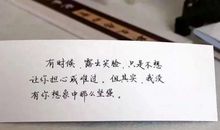 有时候，露出笑脸，只是不想
让你担心或难过。但其实，我没
有你想象中那么坚强。